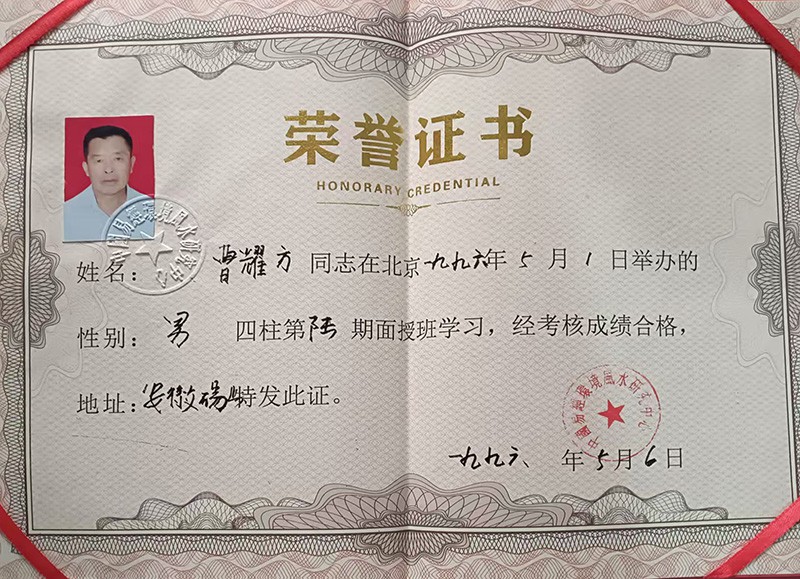 荣誉证书
HONORARY CREDENTIAL
姓名: 曹耀方 同志在北京一九九六年5月1日举办的
性别: 男 四柱第陆期面授班学习,经考核成绩合格,
地址:安徽砀山特发此证。
中國易經環境風水研究中心
一九九六、年5月6日